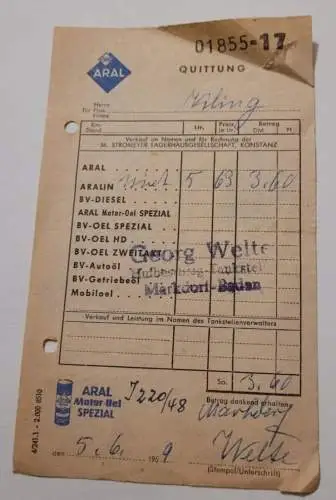 01855-17
ARAL
QUITTUNG
Herrn
Für Frau
Firma
Km-
Stand
Ltr.
Preis
je Ltr.
Betrag
DM Pf
Verkauf im Namen und für Rechnung der
M. STROMEYER LAGERHAUSGESELLSCHAFT, KONSTANZ
ARAL
ARALIN 5 63 3.60
BV-DIESEL
ARAL Motor-Oel SPEZIAL
BV-OEL SPEZIAL
BV-OEL HD
BV-OEL ZWEITAKT
BV-Autoöl
BV-Getriebeöl
Mobiloel
Georg Welte
Markdorf-Baden
Verkauf und Leistung im Namen des Tankstellenverwalters
Sa. 3.60
ARAL
Motor-Oel
SPEZIAL
J220/48
Betrag dankend erhalten
Markdorf
den 5. 6. 1959
Welte
(Stempel/Unterschrift)
4/241.1 - 2.000 (650)